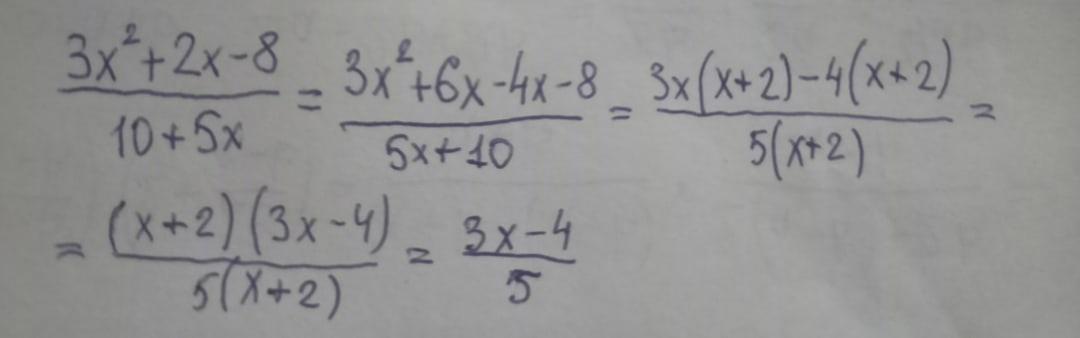 (3x²+2x-8)/(10+5x) = (3x²+6x-4x-8)/(5x+10) = (3x(x+2)-4(x+2))/(5(x+2)) =
= ((x+2)(3x-4))/(5(x+2)) = (3x-4)/5